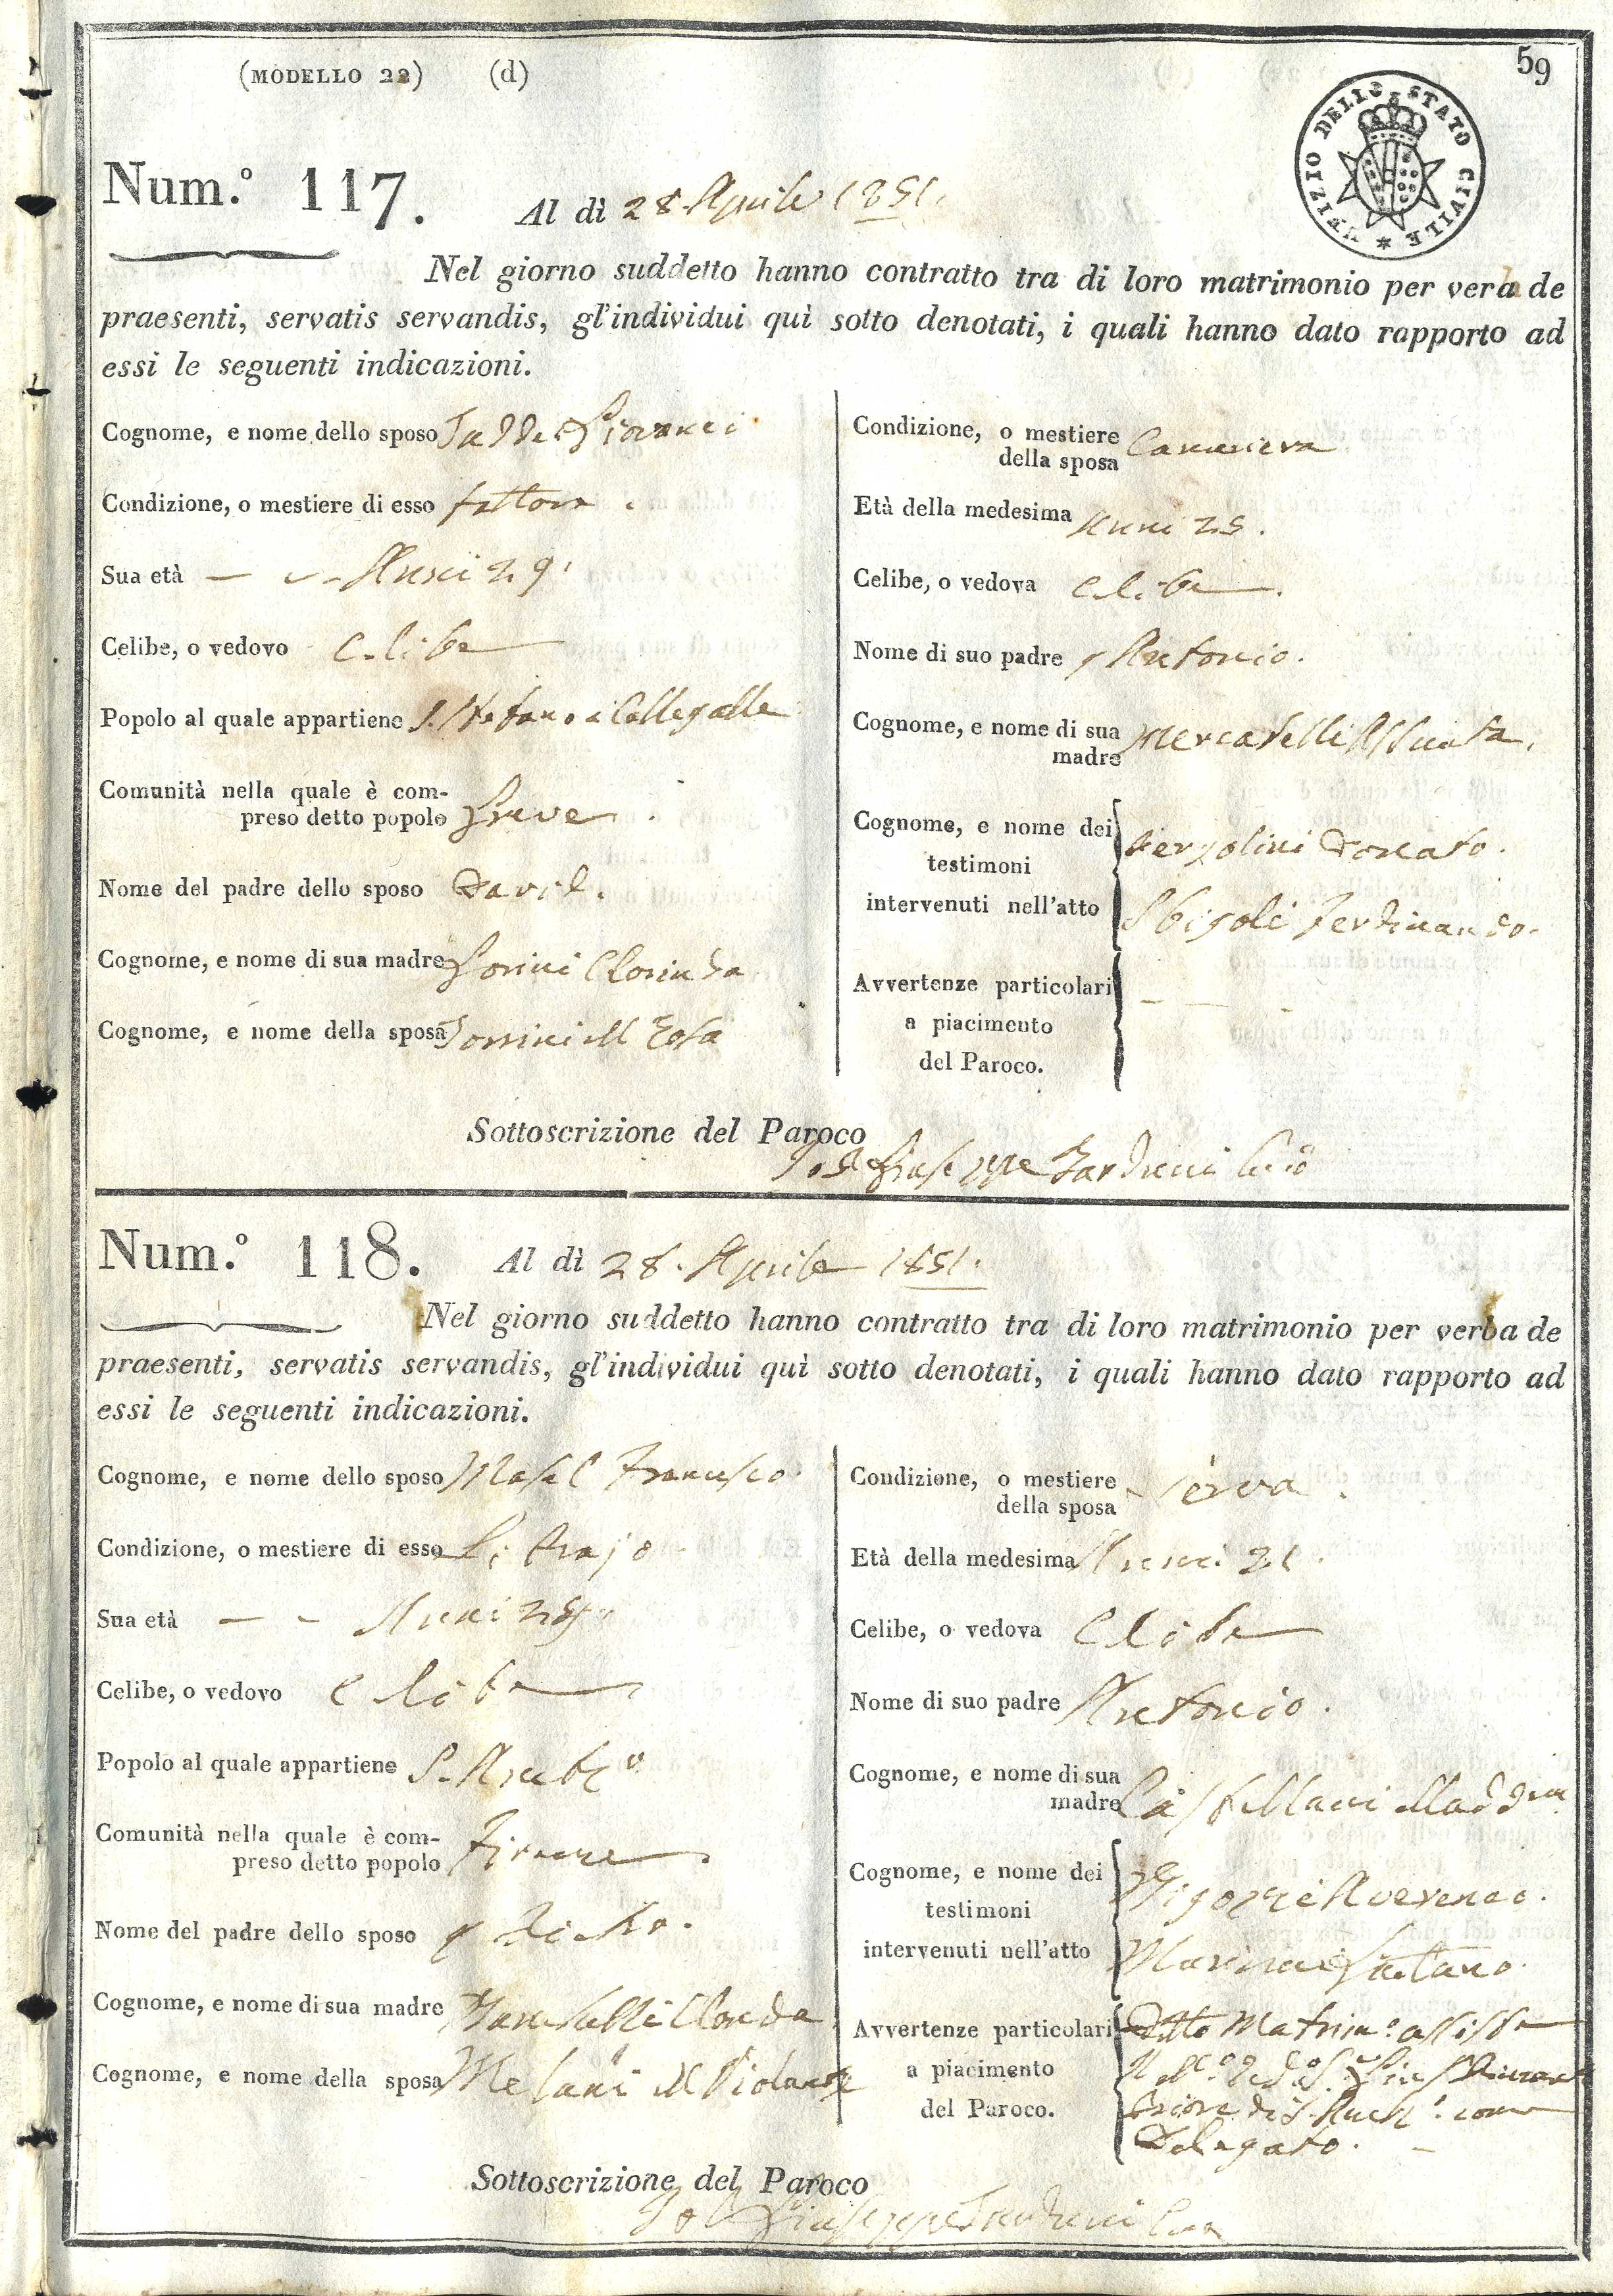 (MODELLO 22) (d)
59
UFIZIO DELLO STATO CIVILE *
Num.º 117. Al dì 28. Aprile 1851.
Nel giorno suddetto hanno contratto tra di loro matrimonio per verba de
praesenti, servatis servandis, gl'individui quì sotto denotati, i quali hanno dato rapporto ad
essi le seguenti indicazioni.
Cognome, e nome dello sposo Taddei Giovanni
Condizione, o mestiere di esso fattore.
Sua età — Anni 29.
Celibe, o vedovo Celibe
Popolo al quale appartiene S. Stefano a Collegalle
Comunità nella quale è com-
preso detto popolo Greve.
Nome del padre dello sposo David.
Cognome, e nome di sua madre Clorinda
Cognome, e nome della sposa Torrini M. Rosa
Condizione, o mestiere
della sposa Cameriera
Età della medesima Anni 25.
Celibe, o vedova Celibe.
Nome di suo padre Antonio.
Cognome, e nome di sua
madre Mercatelli Assunta.
Cognome, e nome dei
testimoni
intervenuti nell'atto
Donato.
Sbigoli Ferdinando.
Avvertenze particolari
a piacimento
del Paroco.
—
Sottoscrizione del Paroco
Giuseppe
Num.º 118. Al dì 28. Aprile 1851.
Nel giorno suddetto hanno contratto tra di loro matrimonio per verba de
praesenti, servatis servandis, gl'individui quì sotto denotati, i quali hanno dato rapporto ad
essi le seguenti indicazioni.
Cognome, e nome dello sposo Francesco
Condizione, o mestiere di esso Librajo
Sua età — Anni
Celibe, o vedovo Celibe
Popolo al quale appartiene
Comunità nella quale è com-
preso detto popolo Firenze
Nome del padre dello sposo
Cognome, e nome di sua madre
Cognome, e nome della sposa Melani M. Violante
Condizione, o mestiere
della sposa Serva.
Età della medesima Anni 21.
Celibe, o vedova Celibe
Nome di suo padre Antonio.
Cognome, e nome di sua
madre Castellani Madd.na
Cognome, e nome dei
testimoni
intervenuti nell'atto
Marinai Gaetano.
Avvertenze particolari
a piacimento
del Paroco.
Detto Matrim.º assiste
Priore di S. come
Delegato.
Sottoscrizione del Paroco
Giuseppe